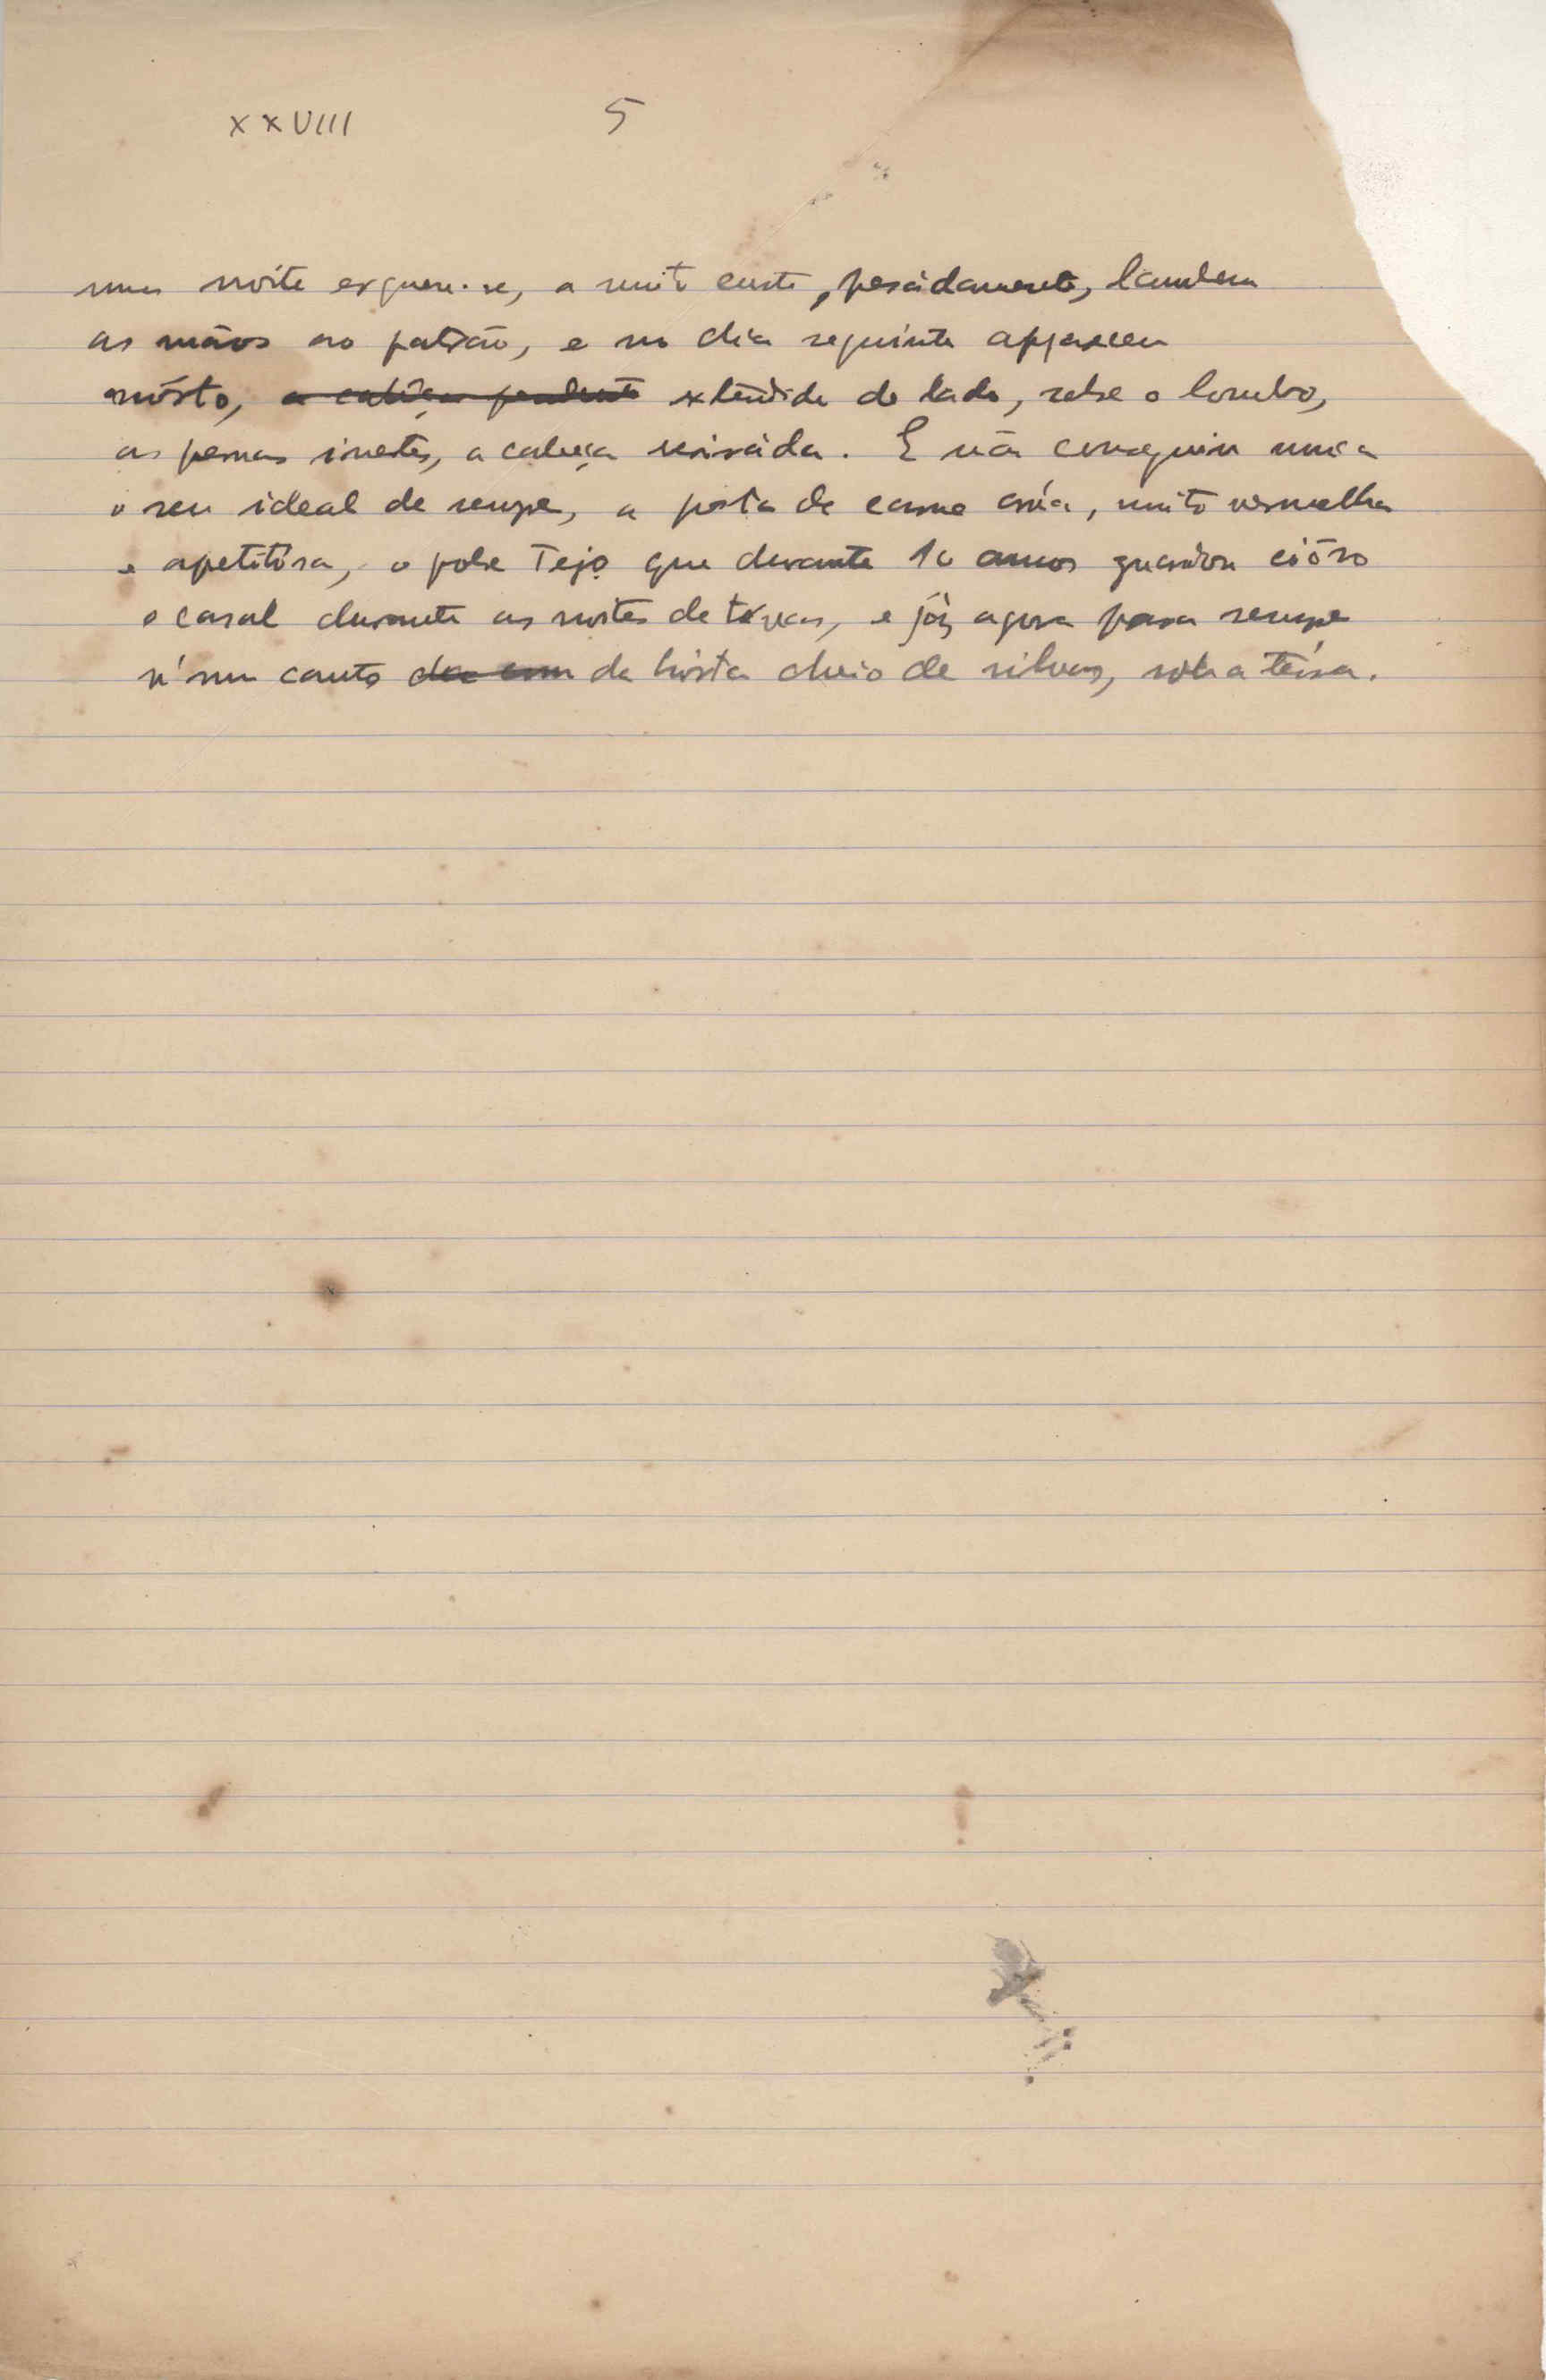 XXVIII 5
uma noite ergueu-se, a muito custo, pesádamente, lambeu
as mãos ao patrão, e no dia seguinte appareceu
môrto, a cabêça pendente extendido de lado, sobre o lombo,
as pernas inertes, a cabeça virada. E não conseguiu nunca
o seu ideal de sempre, a posta de carne crúa, muito vermelha
e apetitôsa, o pobre Tejo que durante 10 annos guardou ciôso
o casal durante as noites de trévas, e jáz agora para sempre
n'um canto da horta cheio de silvas, sob a terra.